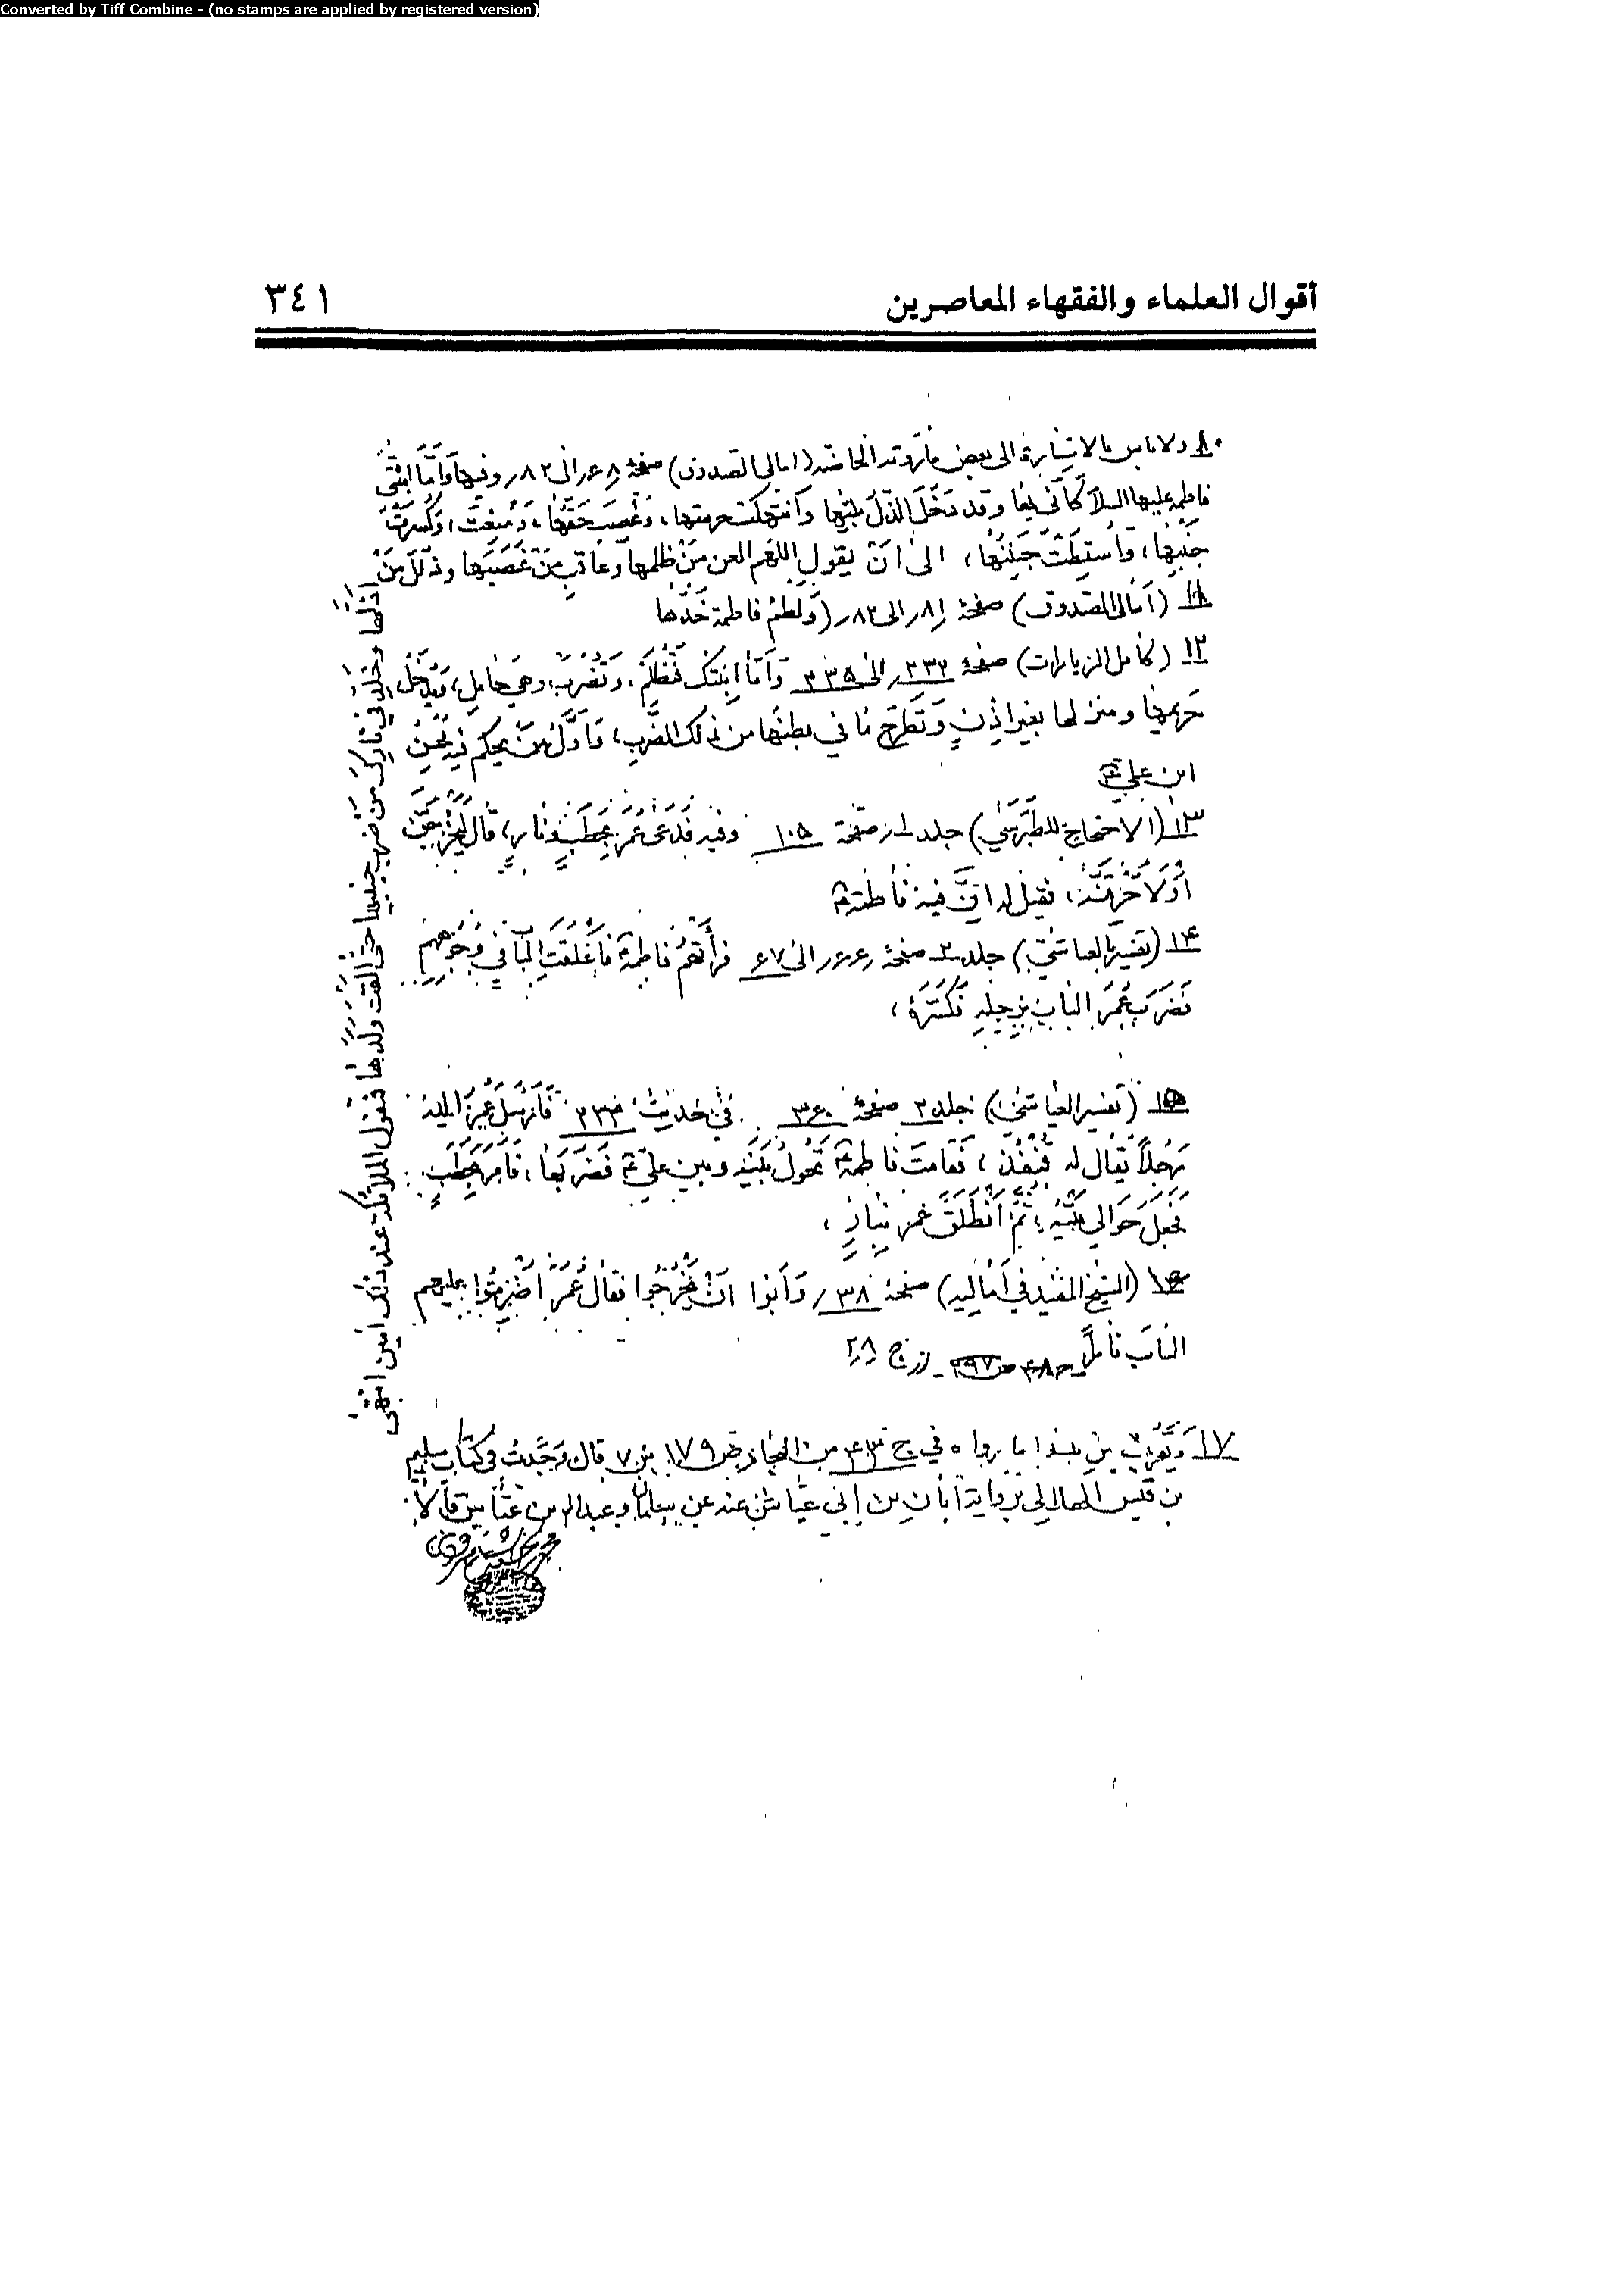 Converted by Tiff Combine - (no stamps are applied by registered version)
أقوال العلماء والفقهاء المعاصرين ٣٤١
ولا باس بالاشارة الى بعض ما روته الخاصّة (امالي الصدوق) صفحة ٦٨ الى ٨٢ وفيها وَأمّا ابْنَتي
فاطمة عليها السلام كَأنّي بها وقد دَخَلَ الذّلّ بَيْتَها وَانْتُهِكَتْ حرمتها، وَغُصِبَ حَقّها، وَمُنِعَتْ، وَكُسِرَتْ
جَنْبُها، وَأُسْقِطَتْ جَنينُها، الى انْ يقول اللهُم العن مَنْ ظلمها وَعَاقِبْ مَنْ غَصَبَها وذَلِّلْ مَنْ
اذَلّها وخَلِّدْ في نارِكَ مَنْ ضرب جنبيها حَتّى القت ولَدَها فتقول الملائكة عند ذلك امين انتهى
١١ (أمالي الصدوق) صفحة ٨١ الى ٨٢ (وَلَطْمُ فاطمة خَدَّها
١٢ (كامل الزيارات) صفحة ٣٣٢ الى ٣٣٥ وَأمّا ابْنَتُكَ فَتُظْلَمُ، وَتُضْرَبُ، وهي حامل، وَيُدْخَلُ
حَريمها ومنزلها بغير اذنٍ وَتَطْرَحُ مٰا في بطنها من ذلك الضَرب، وَأوّلُ مَنْ يحكم فيه مُحْسِنِ
ابن علي ع
١٣ (الاحتجاج للطَبَرسي) جلد ١ صفحة ١٠٥ وفيه فَدَعىٰ عُمَرُ بِحَطَبٍ وَنارٍ، قال لَيَخْرُجَنَّ
أوْ لَأحْرِقَنَّهُ، فقيل له انَّ فيه فاطمة ع
١٤ (تفسير العياشي) جلد ٢ صفحة ٦٦ الى ٦٧ فرأتْهُمْ فاطمة فَأغْلَقَتِ البٰابَ في وُجُوهِهِم
فَضَرَبَ عُمَرُ البٰابَ بِرِجْلِهِ فَكَسَرَهُ،
١٥ (تفسير العيّاشي) جلد ٢ صفحة ٣٦٠ في حَديث ٢٣٣ فَأرْسَلَ عُمَرُ اليه
رَجُلاً يُقال له قُنْفُذ، فَقامَتْ فاطمة ع تَحُولُ بَيْنَهُ وبين عليّ ع فَضَرَبَها، فَأمَرَ بِحَطَبٍ
فَجُعِلَ حَوالي بَيْتِهِ، ثُمَّ انْطَلَقَ عُمَرُ بِنارٍ،
١٦ (الشيخ المفيد في أماليه) صفحة ٣٨ وَأبَوْا انْ يَخْرُجُوا فقال عُمَرُ اضْرِمُوا عليهم
البٰابَ نٰاراً
١٧ وَيَقْرُبُ مِنْ هذا ما رواه في ج ٤٣ من البحار ص ١٧٩ قال وَجَدتُ في كتٰاب سليم
بن قيس الهلالي برواية أبان بن أبي عيّاش عنه عن سلمان وعبد الله بن عبّاس قالا